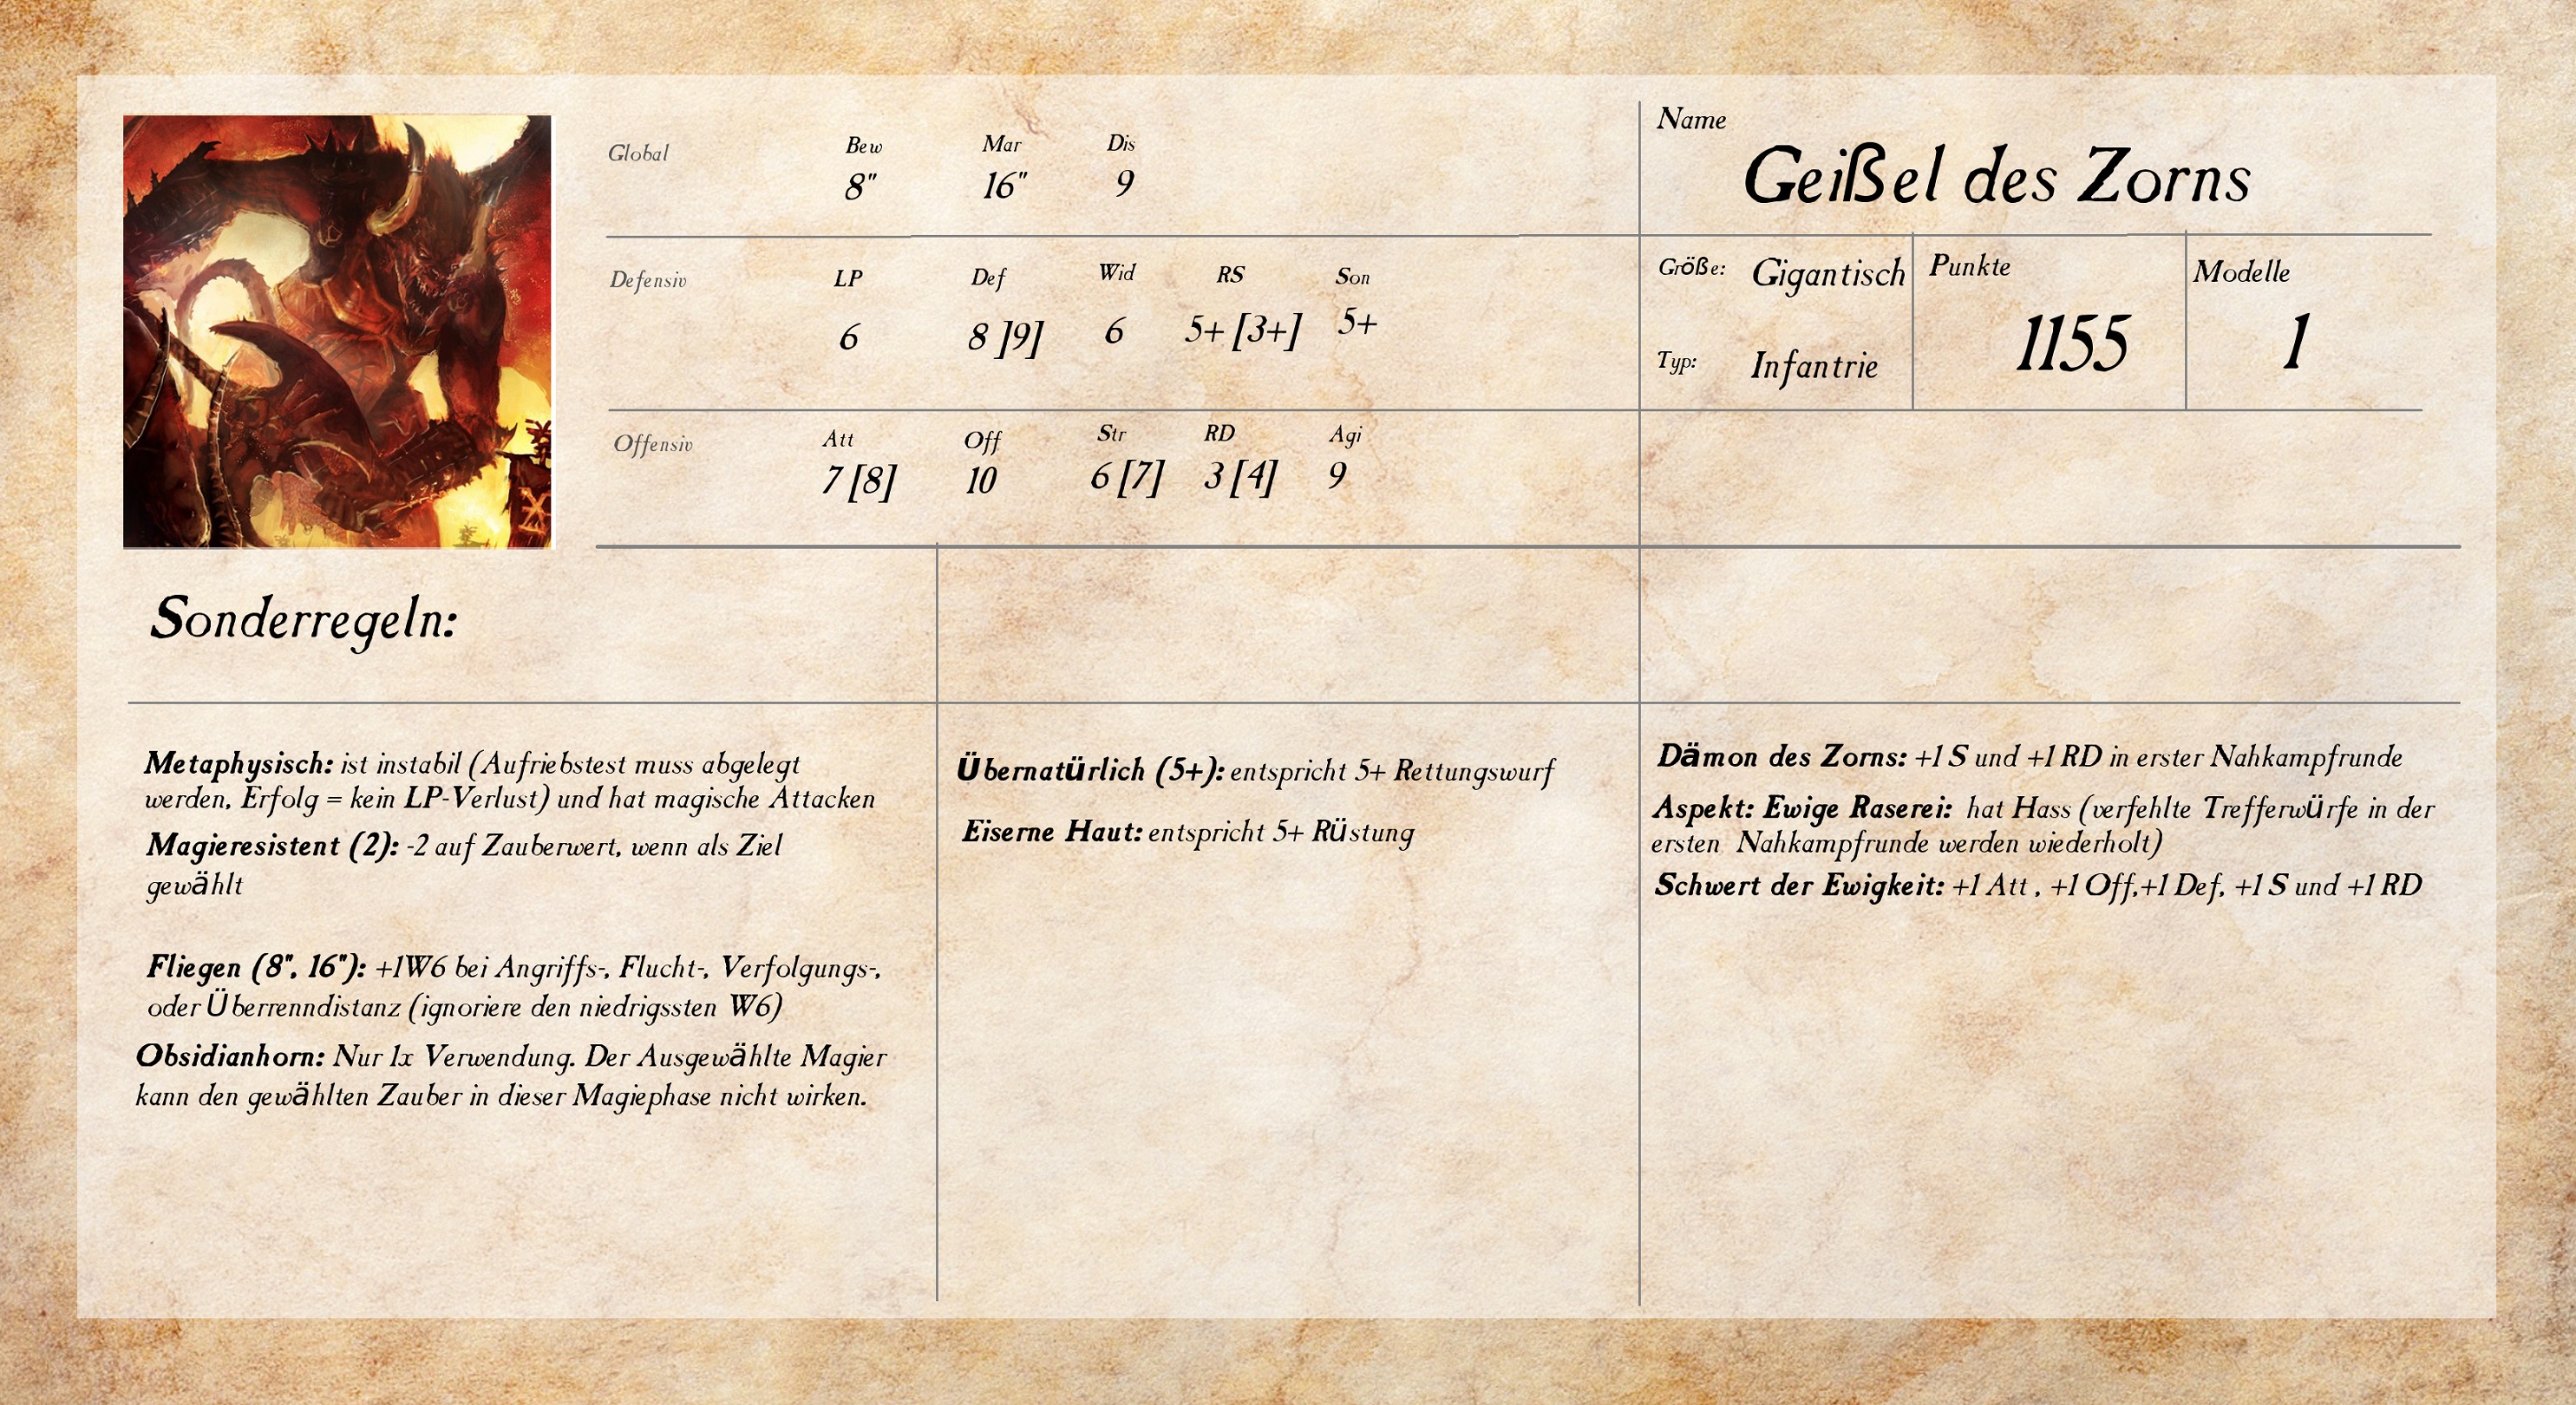 Global Bew Mar Dis
8" 16" 9
Defensiv LP Def Wid RS Son
6 8 ]9] 6 5+ [3+] 5+
Offensiv Att Off Str RD Agi
7 [8] 10 6 [7] 3 [4] 9
Name
Geißel des Zorns
Größe: Gigantisch
Typ: Infantrie
Punkte
1155
Modelle
1
Sonderregeln:
Metaphysisch: ist instabil (Aufriebstest muss abgelegt
werden, Erfolg = kein LP-Verlust) und hat magische Attacken
Magieresistent (2): -2 auf Zauberwert, wenn als Ziel
gewählt
Fliegen (8", 16"): +1W6 bei Angriffs-, Flucht-, Verfolgungs-,
oder Überrenndistanz (ignoriere den niedrigssten W6)
Obsidianhorn: Nur 1x Verwendung. Der Ausgewählte Magier
kann den gewählten Zauber in dieser Magiephase nicht wirken.
Übernatürlich (5+): entspricht 5+ Rettungswurf
Eiserne Haut: entspricht 5+ Rüstung
Dämon des Zorns: +1 S und +1 RD in erster Nahkampfrunde
Aspekt: Ewige Raserei: hat Hass (verfehlte Trefferwürfe in der
ersten Nahkampfrunde werden wiederholt)
Schwert der Ewigkeit: +1 Att , +1 Off,+1 Def, +1 S und +1 RD